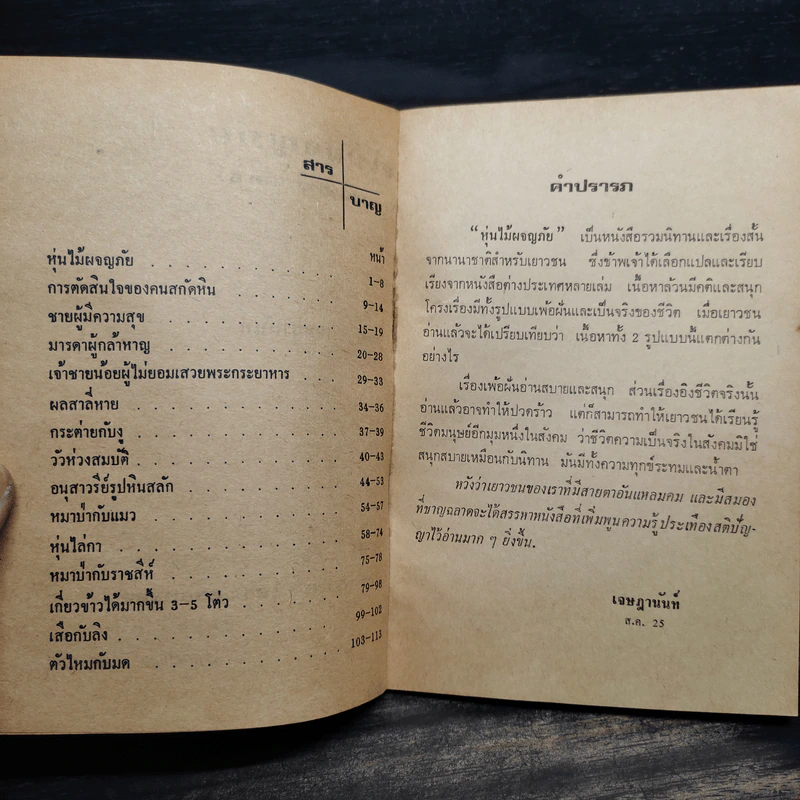 สาร
บาญ
หน้า
หุ่นไม้ผจญภัย 1-8
การตัดสินใจของคนสกัดหิน 9-14
ชายผู้มีความสุข 15-19
มารดาผู้กล้าหาญ 20-28
เจ้าชายน้อยผู้ไม่ยอมเสวยพระกระยาหาร 29-33
ผลสาลี่หาย 34-36
กระต่ายกับงู 37-39
วัวห่วงสมบัติ 40-43
อนุสาวรีย์รูปหินสลัก 44-53
หมาป่ากับแมว 54-57
หุ่นไล่กา 58-74
หมาป่ากับราชสีห์ 75-78
เกี่ยวข้าวได้มากขึ้น 3-5 โต่ว 79-98
เสือกับลิง 99-102
ตัวไหมกับมด 103-113
คำปรารภ
“หุ่นไม้ผจญภัย” เป็นหนังสือรวมนิทานและเรื่องสั้น
จากนานาชาติสำหรับเยาวชน ซึ่งข้าพเจ้าได้เลือกแปลและเรียบ
เรียงจากหนังสือต่างประเทศหลายเล่ม เนื้อหาล้วนมีคติและสนุก
โครงเรื่องมีทั้งรูปแบบเพ้อฝันและเป็นจริงของชีวิต เมื่อเยาวชน
อ่านแล้วจะได้เปรียบเทียบว่า เนื้อหาทั้ง 2 รูปแบบนี้แตกต่างกัน
อย่างไร
เรื่องเพ้อฝันอ่านสบายและสนุก ส่วนเรื่องอิงชีวิตจริงนั้น
อ่านแล้วอาจทำให้ปวดร้าว แต่ก็สามารถทำให้เยาวชนได้เรียนรู้
ชีวิตมนุษย์อีกมุมหนึ่งในสังคม ว่าชีวิตความเป็นจริงในสังคมมิใช่
สนุกสบายเหมือนกับนิทาน มันมีทั้งความทุกข์ระทมและน้ำตา
หวังว่าเยาวชนของเราที่มีสายตาอันแหลมคม และมีสมอง
ที่ชาญฉลาดจะได้สรรหาหนังสือที่เพิ่มพูนความรู้ ประเทืองสติปัญ-
ญาไว้อ่านมาก ๆ ยิ่งขึ้น.
เจษฎานันท์
ส.ค. 25